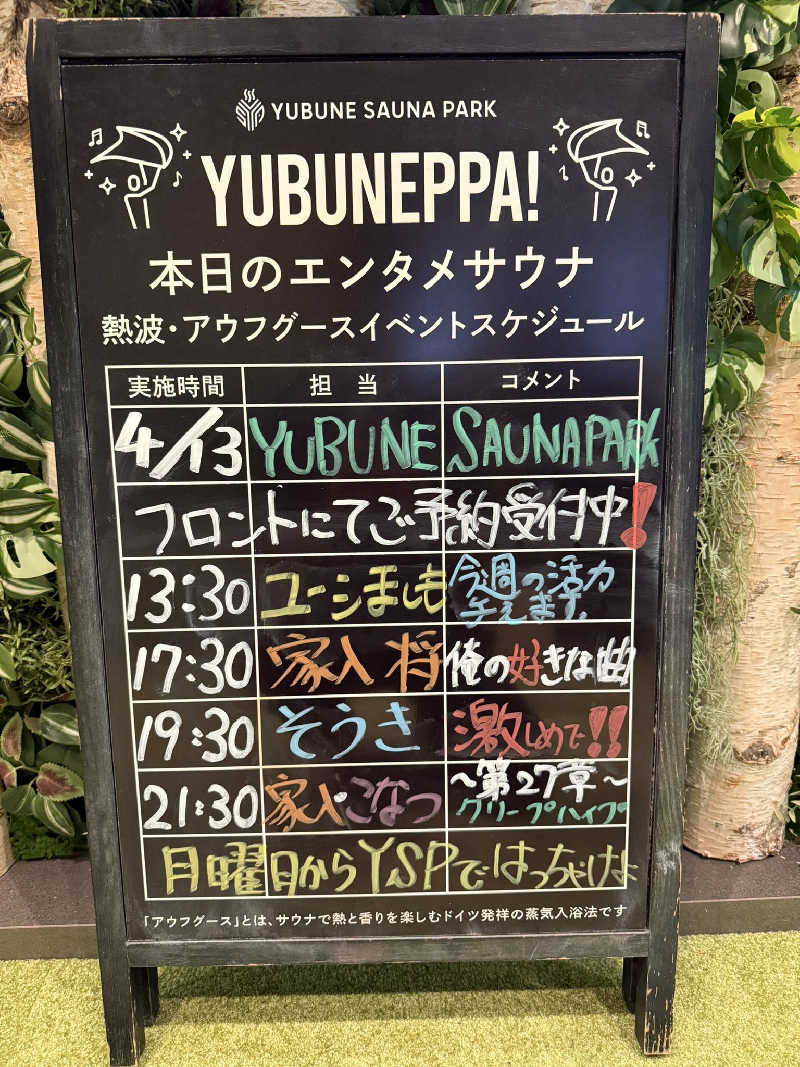 YUBUNE SAUNA PARK
YUBUNEPPA!
本日のエンタメサウナ
熱波・アウフグースイベントスケジュール
実施時間 担当 コメント
4/13 YUBUNE SAUNAPARK
フロントにてご予約受付中!
13:30 ユーシましも 今週の活力チえます。
17:30 家入 将 俺の好きな曲
19:30 そうさ 激しめで!!
21:30 家入・こなつ 〜第27章〜 クリープハイプ
月曜日からYSPではっちゃけよ
「アウフグース」とは、サウナで熱と香りを楽しむドイツ発祥の蒸気入浴法です